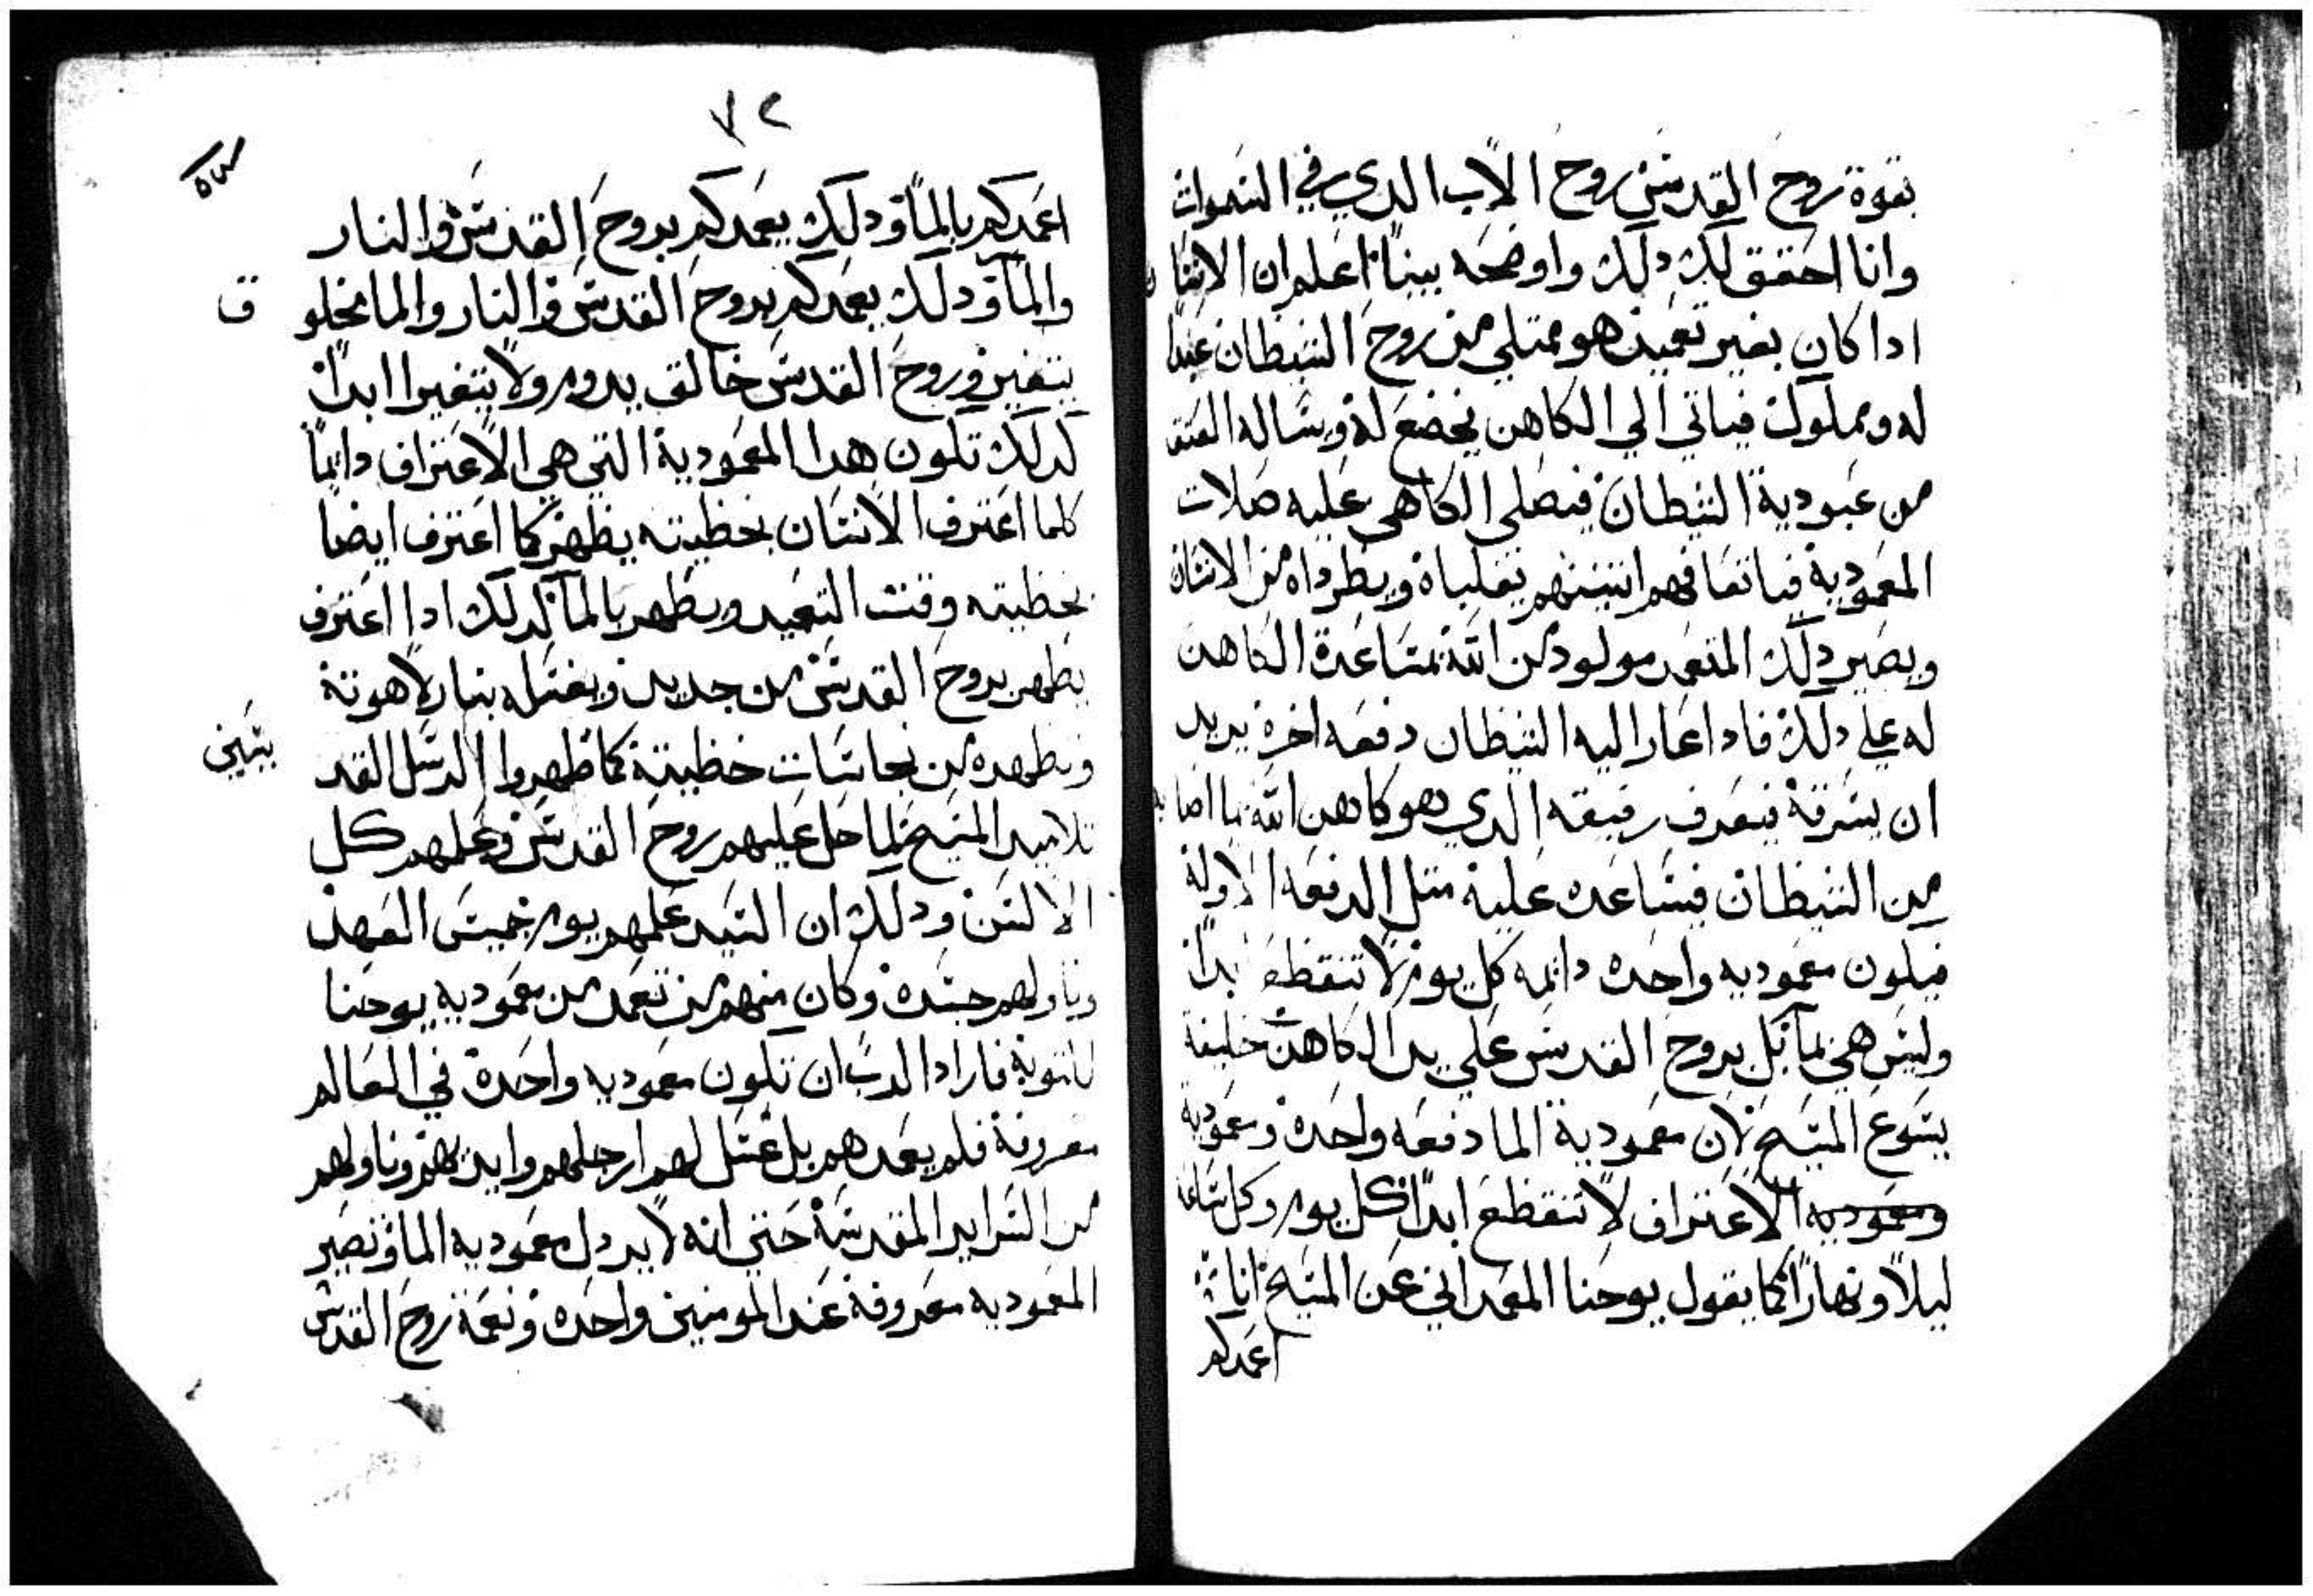 بقوة روح القدس روح الاب الدي في السموات
وانا احقق لك دلك واوضحه بيناً اعلم ان الانسان
ادا كان بغير تعميد هو ممتلي من روح الشيطان عبداً
له ومملوك فياتي الي الكاهن يخضع له ويساله العتق
من عبودية الشيطان فيصلي الكاهن عليه صلات
المعمودية فياتفا فهم اتنينهم يقلباه ويطرداه من الانسان
ويصير دلك المتعمد مولود من الله بمساعدة الكاهن
له علي دلك فادا عاد اليه الشيطان دفعه اخرة يريد
ان يسرقة فيعرف رفيقه الدي هو كاهن الله بما اصابه
من الشيطان فيساعده علية متل الدفعه الاولة
فيكون معموديه واحده دايمه كل يوم لا تنقطع ابداً
وليس هي بما بل بروح القدس علي يد الكاهن خليفة
يسوع المسيح لان معمودية الما دفعه واحدة ومعمودية
ومعموديه الاعتراف لا تنقطع ابداً كل يوم وكل ساعه
ليلاً ونهاراً كما يقول يوحنا المعمداني عن المسيح انا
اعمدكم
٧٢
اعمدكم بالما ودلك يعمدكم بروح القدس والنار
والما ودلك يعمدكم بروح القدس والنار والما مخلوق
يتغير وروح القدس خالق يدوم ولا يتغير ابداً
كدلك تكون هدا المعمودية التي هي الاعتراف دايماً
كلما اعترف الانسان بخطيته يطهر كما اعترف ايضاً
بخطيته وقت التعميد ويطهر بالما كدلك ادا اعترف
يطهر بروح القدس من جديد ويغسله بنار لاهوته
ويطهره من نجاسات خطيته كما طهروا الرسل القديسين
تلاميد المسيح لما حل عليهم روح القدس وعلمهم كل
الالسن ودلك ان السيد علمهم يوم خميس العهد
وناولهم جسده وكان منهم من تعمد من معموديه يوحنا
للتوبة فاراد الرب ان تكون معموديه واحدة في العالم
معروفة فلم يعمدهم بل غسل لهم ارجلهم وايديهم وناولهم
من السراير المقدسة حتي انه لا يردل معموديه الما وتصير
المعموديه معروفة عند المومنين واحده ونعمة روح القدس